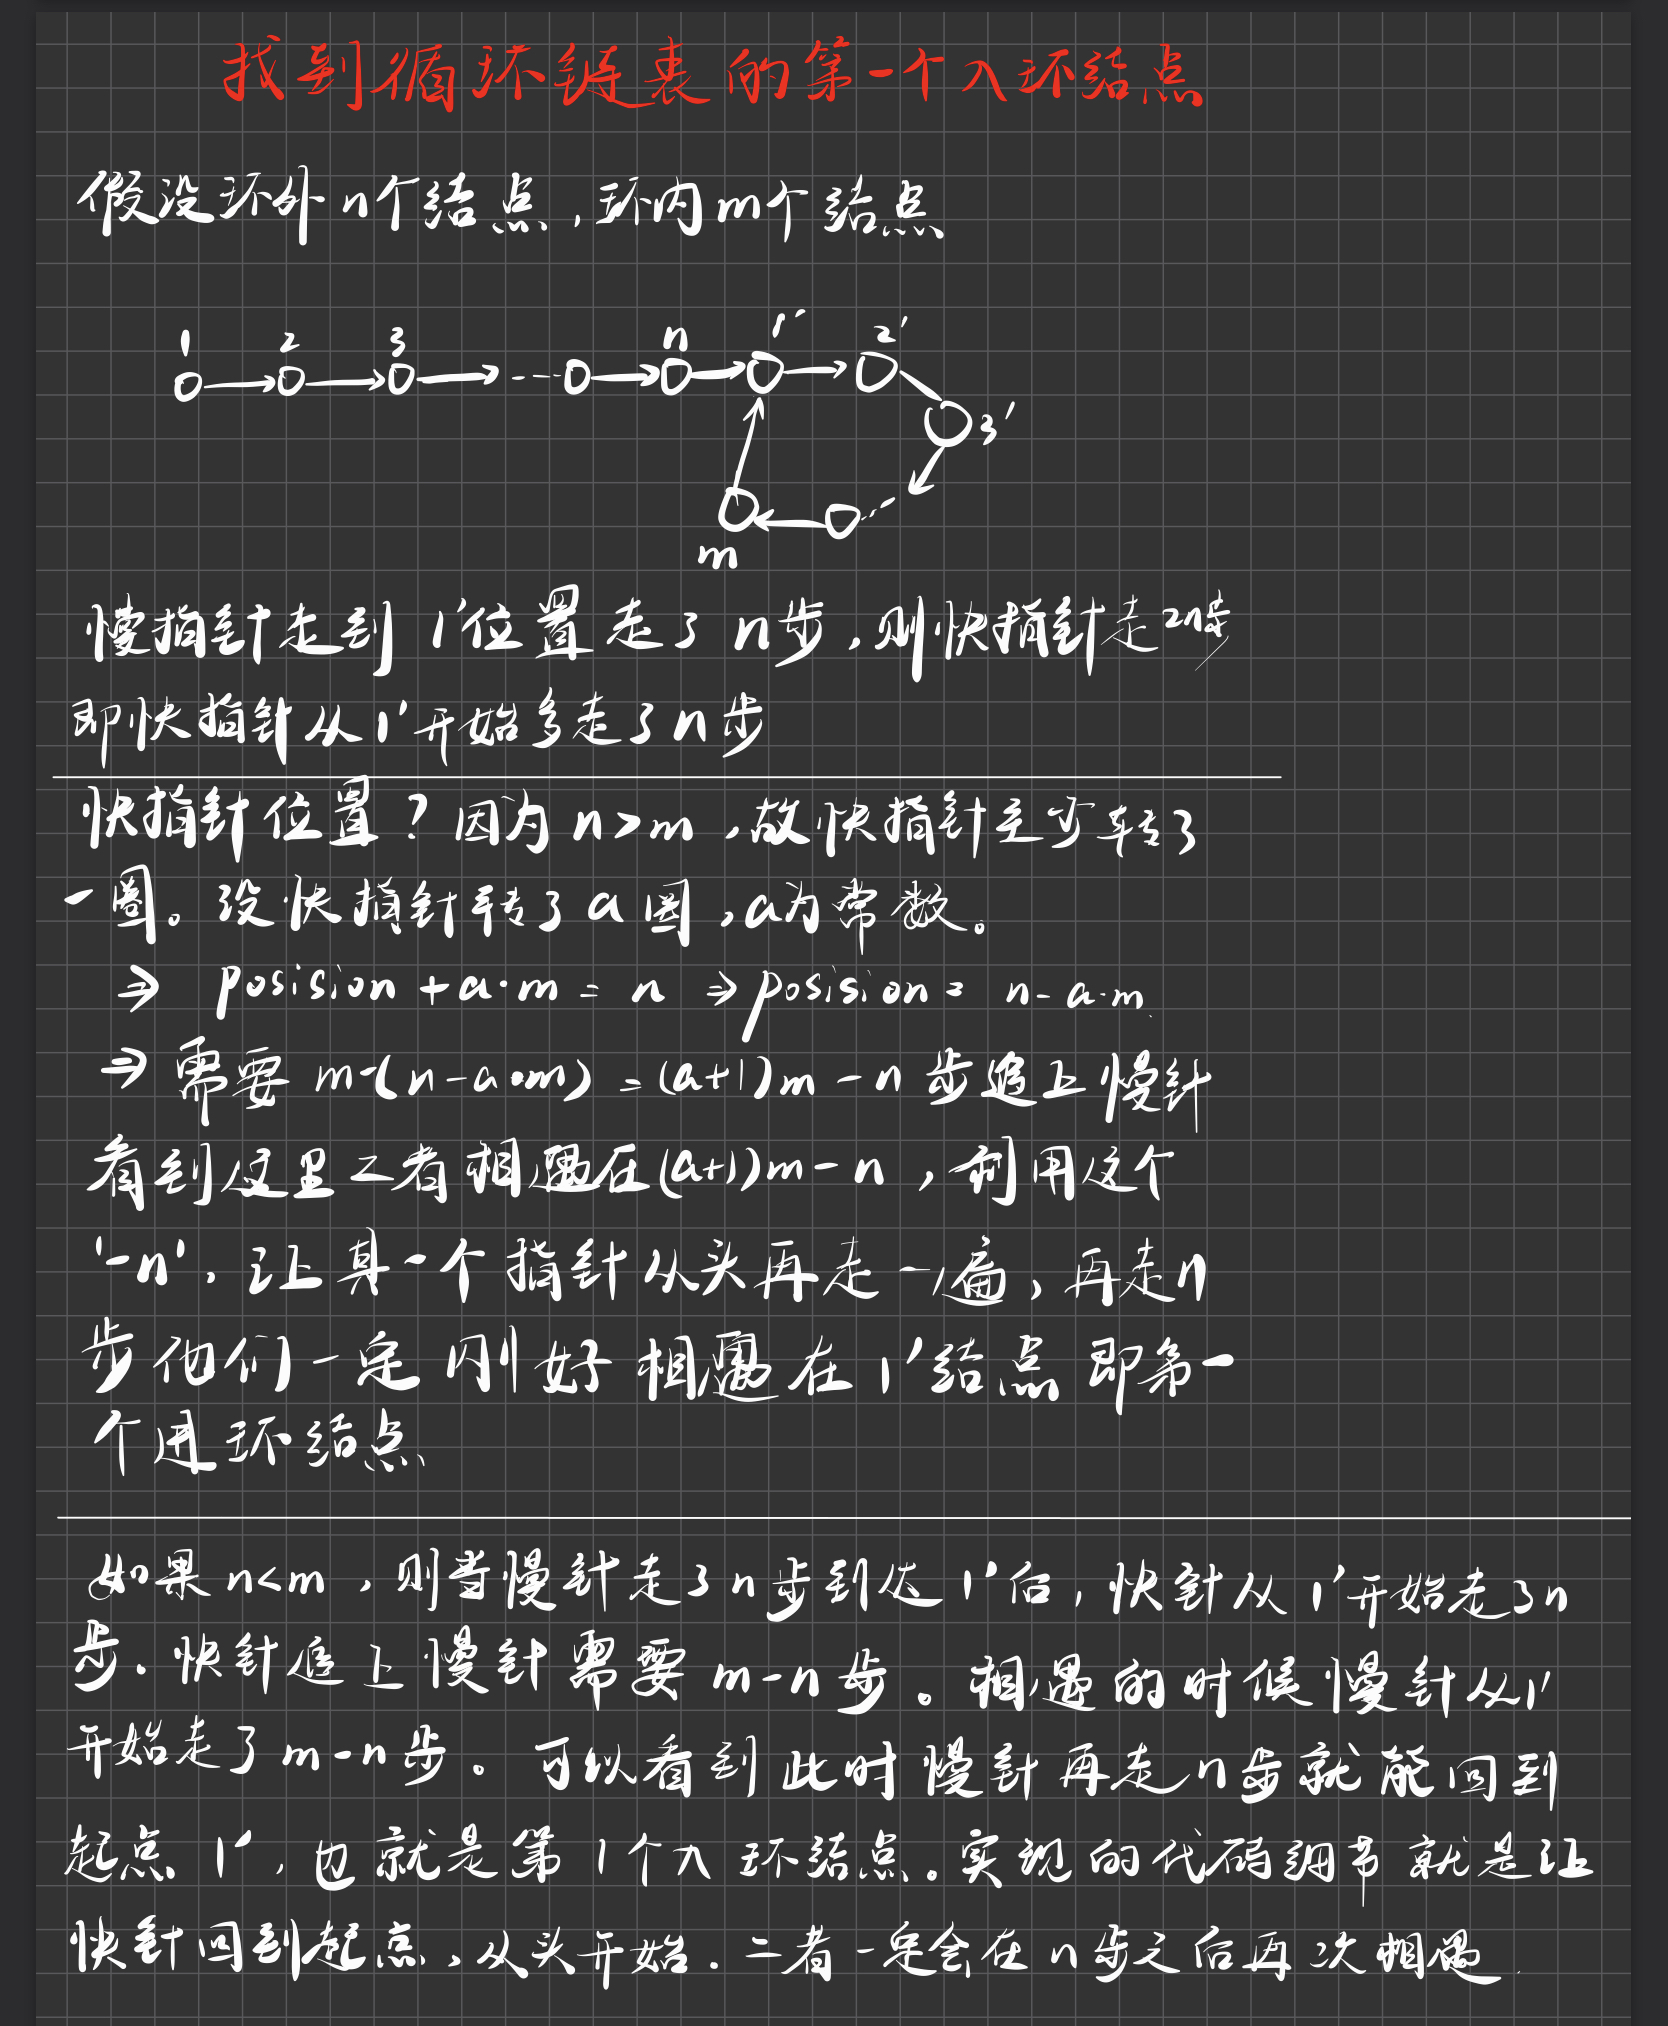 找到循环链表的第一个入环结点
假设环外n个结点,环内m个结点
1 2 3 n 1' 2'
3'
m
慢指针走到1'位置走了n步,则快指针走2n步
即快指针从1'开始多走了n步
快指针位置?因为n>m,故快指针至少转了
一圈。设快指针转了a圈,a为常数。
⇒ posision+a·m= n ⇒posision= n-a·m
⇒需要m-(n-a·m)=(a+1)m-n步追上慢针
看到这里二者相遇在(a+1)m-n,利用这个
'-n',让其一个指针从头再走一遍,再走n
步他们一定刚好相遇在1'结点即第一
个进环结点
如果n<m,则当慢针走了n步到达1'后,快针从1'开始走了n
步.快针追上慢针需要m-n步。相遇的时候慢针从1'
开始走了m-n步。可以看到此时慢针再走n步就能回到
起点1',也就是第1个入环结点。实现的代码细节就是让
快针回到起点,从头开始.二者一定会在n步之后再次相遇.